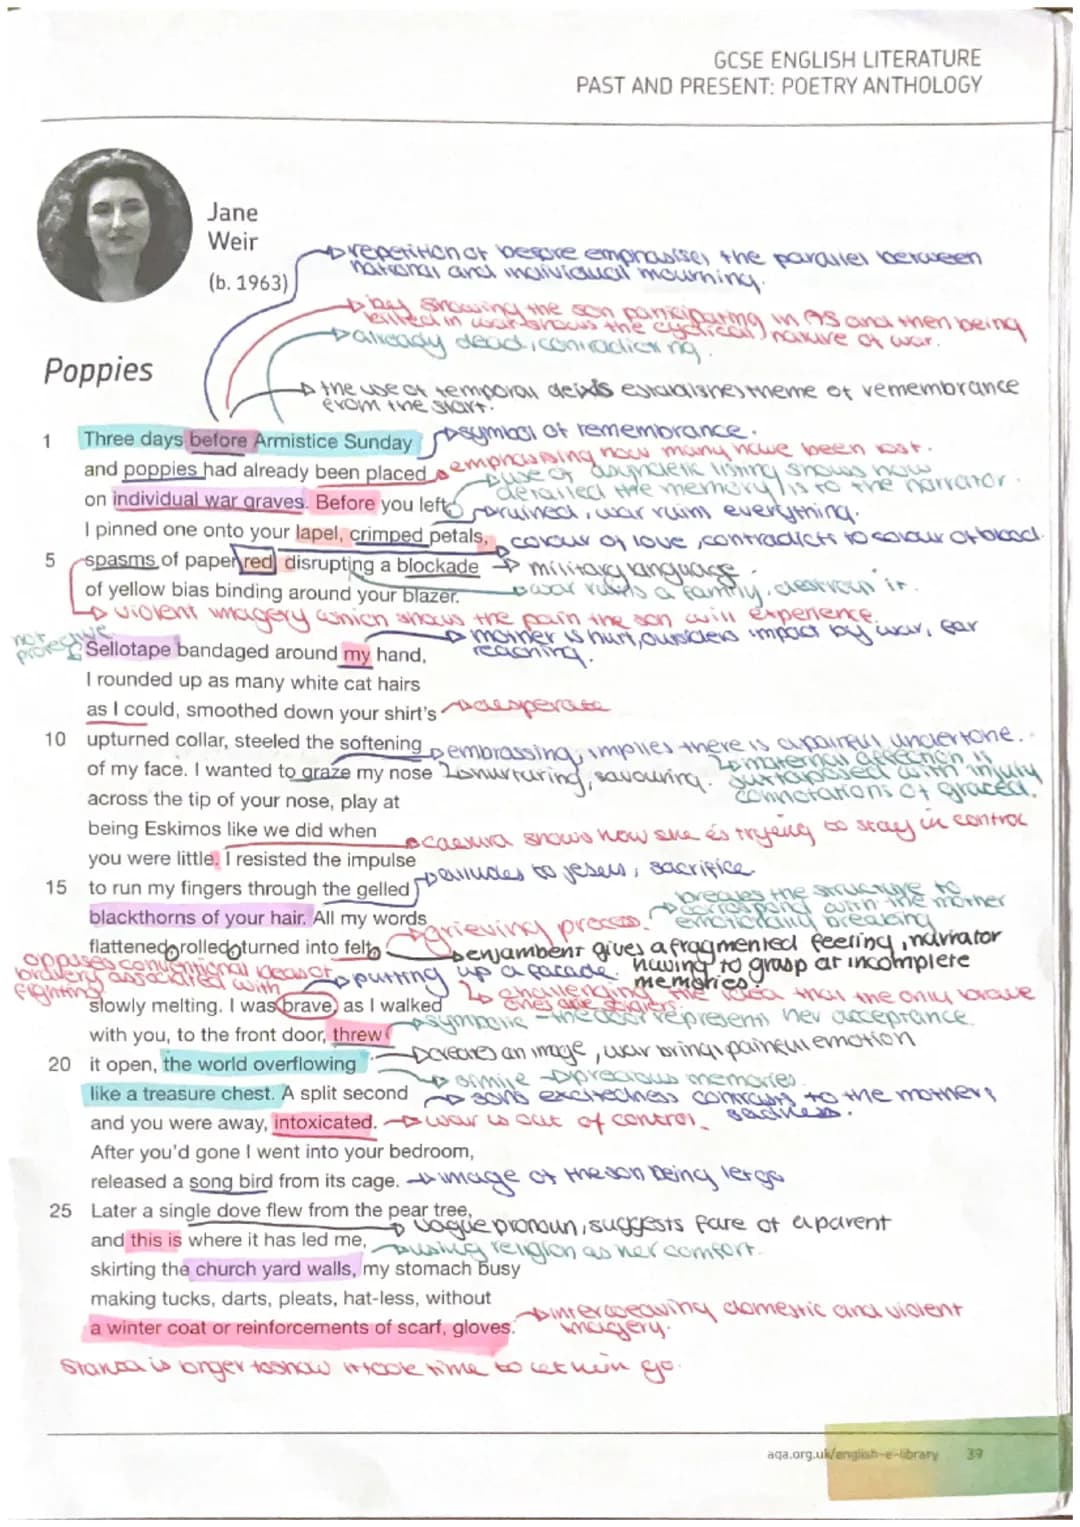 GCSE ENGLISH LITERATURE
PAST AND PRESENT: POETRY ANTHOLOGY
Jane
Weir
(b. 1963)
repetition of before emphasises the parallel between
national and individual mourning.
by showing the son participating in AS and then being
killed in war shows the cyclical nature of war.
already dead, contradicting.
Poppies
the use of temporal deixis establishes theme of remembrance
from the start.
1 Three days before Armistice Sunday
symbol of remembrance.
and poppies had already been placed
emphasising how many have been lost.
use of asyndetic listing shows how
detailed the memory is to the narrator.
on individual war graves. Before you left,
ruined, war ruins everything.
I pinned one onto your lapel, crimped petals,
colour of love, contradicts to colour of blood.
5 spasms of paper red, disrupting a blockade
military language.
of yellow bias binding around your blazer.
war ruins a family, destroys it.
violent imagery which shows the pain the son will experience.
mother is hurt, outsiders impact by war, far
reaching.
not
protective
Sellotape bandaged around my hand,
I rounded up as many white cat hairs
as I could, smoothed down your shirt's
desperate
10 upturned collar, steeled the softening
embrassing, implies there is a painful undertone.
of my face. I wanted to graze my nose
nurturing, savouring.
maternal affection is
juxtaposed with injury
connotations of grazed.
across the tip of your nose, play at
being Eskimos like we did when
caesura shows how she is trying to stay in control
you were little. I resisted the impulse
alludes to jesus, sacrifice.
15 to run my fingers through the gelled
breaks the structure to
correspond with the mother
emotionally breaking
blackthorns of your hair. All my words
grieving process.
flattened, rolled, turned into felt,
enjambent gives a fragmented feeling, narrator
having to grasp at incomplete
memories.
opposes conventional ideas of
bravery associated with
fighting
putting up a facade.
challenging the idea that the only brave
ones are soldiers.
slowly melting. I was brave, as I walked
with you, to the front door, threw
symbolic - the door represents her acceptance.
20 it open, the world overflowing
creates an image, war brings painful emotion
simile precious memories.
like a treasure chest. A split second
sons excitedness contrasts to the mothers
sadness.
and you were away, intoxicated.
war is out of control.
After you'd gone I went into your bedroom,
released a song bird from its cage.
image of the son being let go
25 Later a single dove flew from the pear tree,
vague pronoun, suggests fare of a parent
and this is where it has led me,
using religion as her comfort.
skirting the church yard walls, my stomach busy
making tucks, darts, pleats, hat-less, without
interweaving domestic and violent
imagery.
a winter coat or reinforcements of scarf, gloves.
Stanza is longer to show it took time to let him go.
aqa.org.uk/english-e-library 39